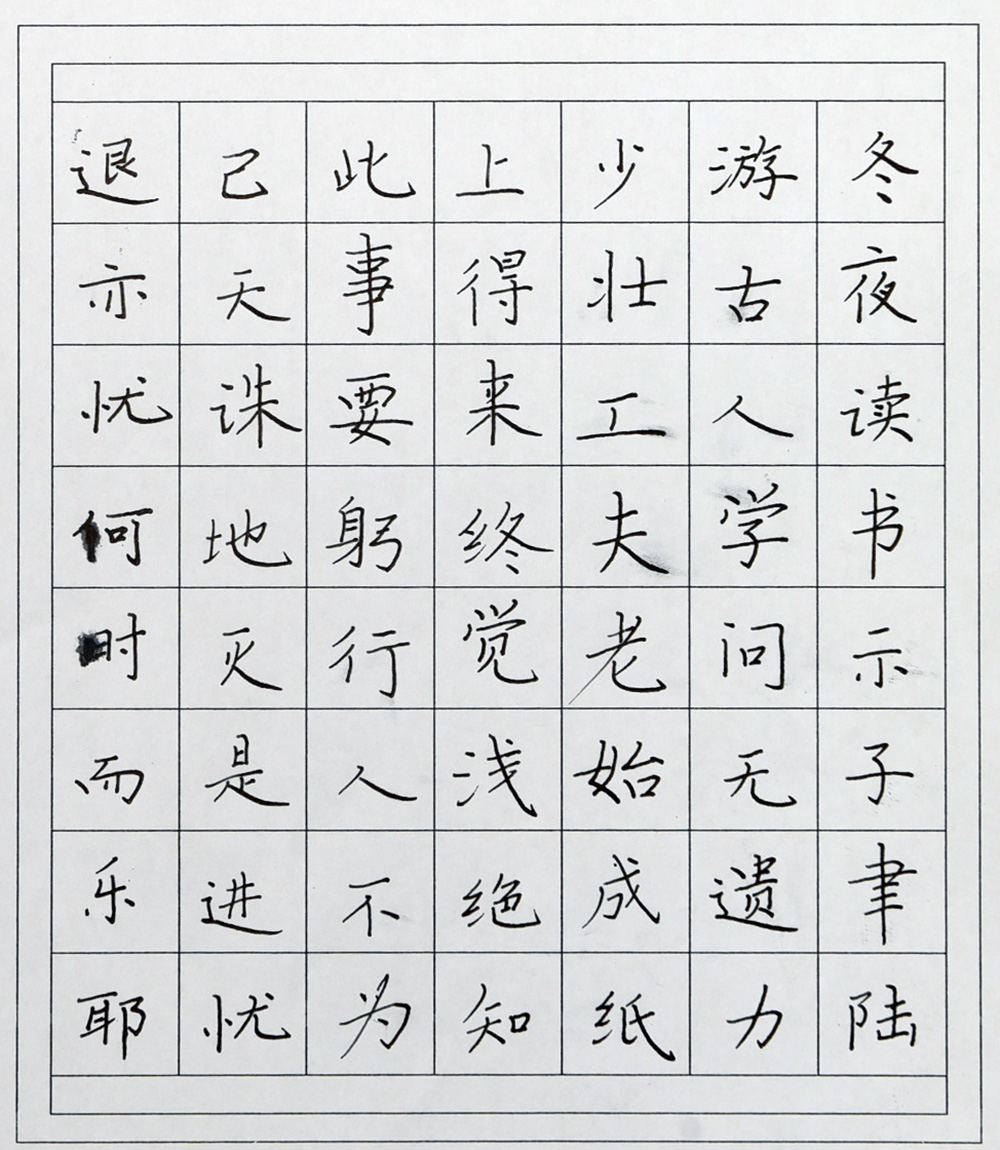 冬夜读书示子聿陆
游古人学问无遗力
少壮工夫老始成纸
上得来终觉浅绝知
此事要躬行人不为
己天诛地灭是进忧
退亦忧何时而乐耶